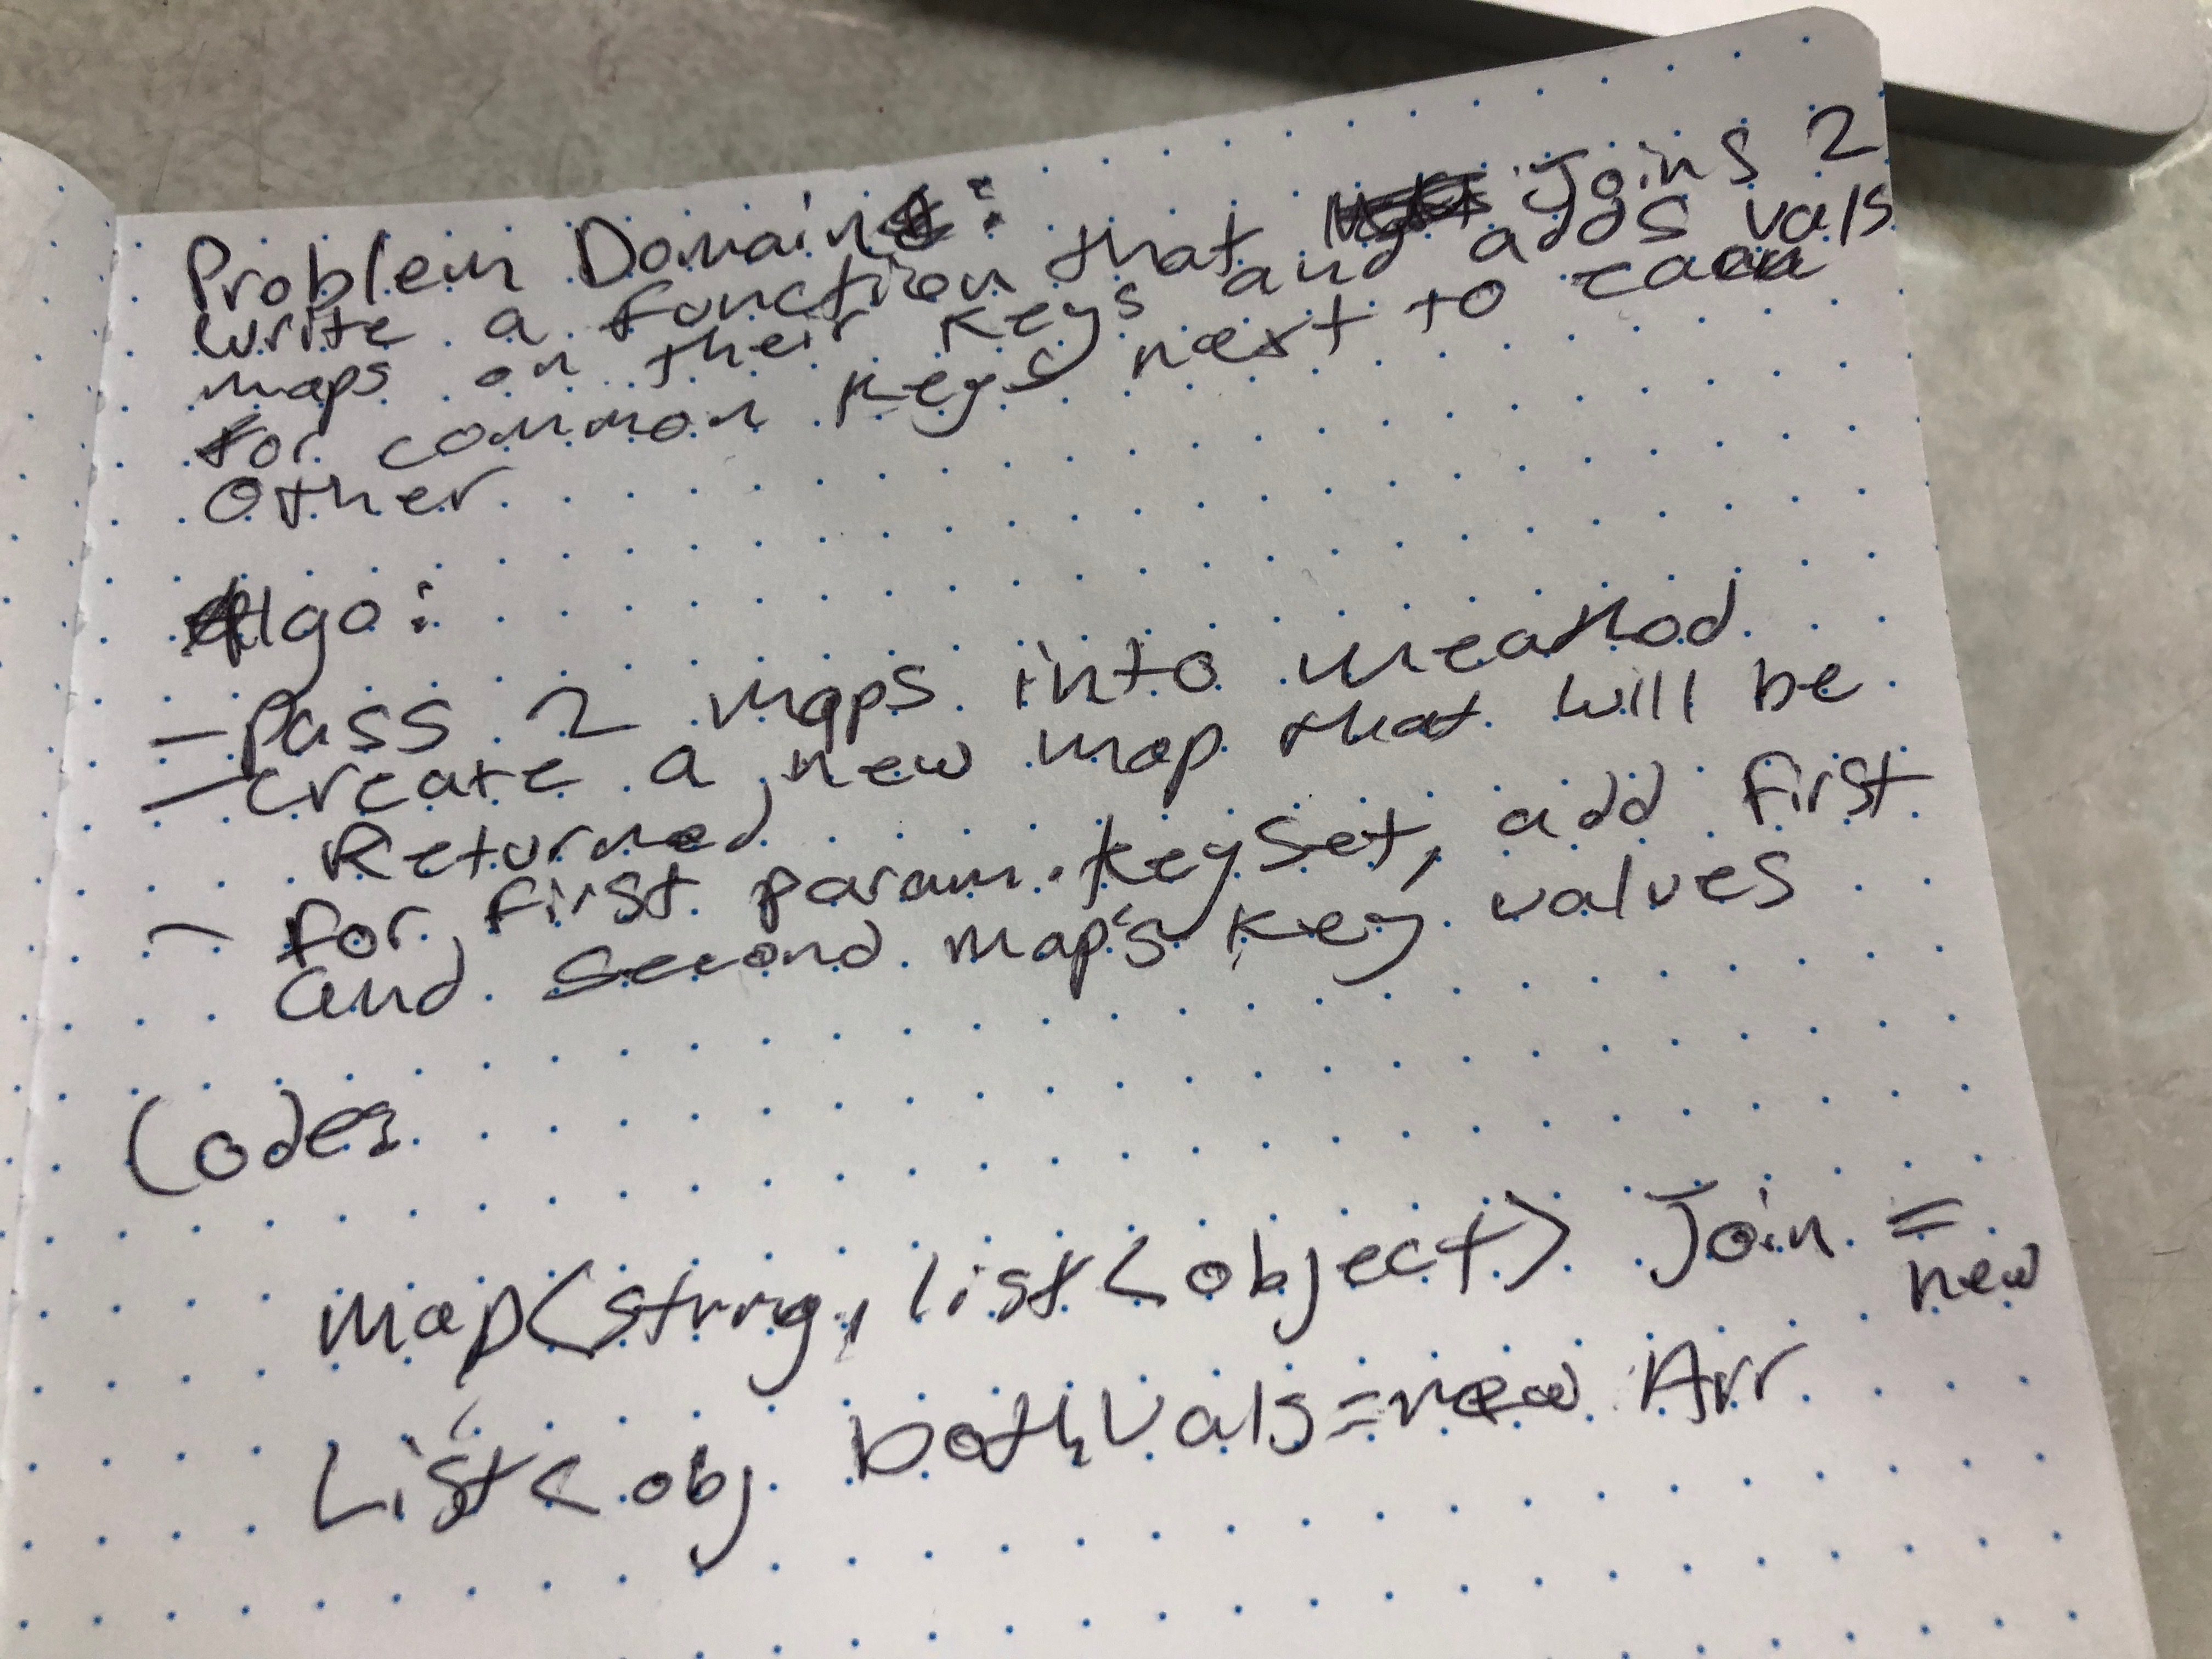 Problem Domain: 
Write a function that Joins 2
maps on their keys and adds vals
for common keys next to each
other
Algo:
- Pass 2 maps into method
- Create a new map that will be
Returned,
- for first param.keyset, add first
and second map's key values
Code:
Map<String, list<object> Join = new
List<obj bothVals = new Arr